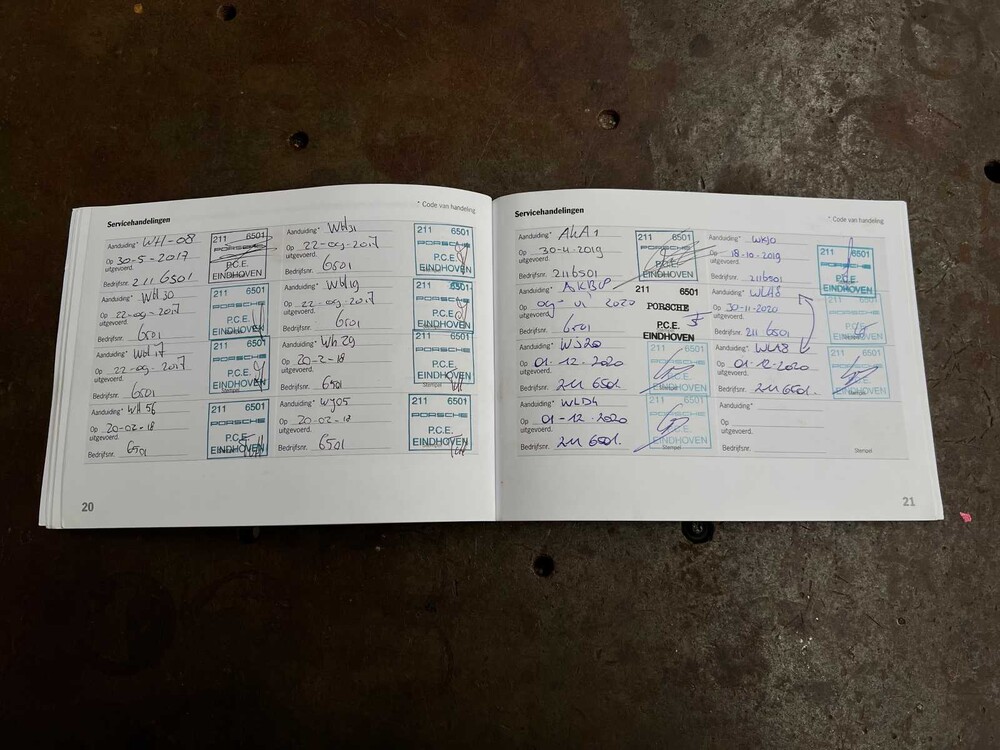 Servicehandelingen
* Code van handeling
Aanduiding* WH-08
Op 30-5-2017
uitgevoerd.
Bedrijfsnr. 2116501
211 6501
PORSCHE
P.C.E.
EINDHOVEN
Aanduiding* WH31
Op 22-09-2017
uitgevoerd.
Bedrijfsnr. 6501
211 6501
PORSCHE
P.C.E.
EINDHOVEN
Aanduiding* WH30
Op 22-09-2017
uitgevoerd.
Bedrijfsnr. 6501
211 6501
PORSCHE
P.C.E.
EINDHOVEN
Aanduiding*
Op 22-09-2017
uitgevoerd.
Bedrijfsnr. 6501
211 6501
PORSCHE
P.C.E.
EINDHOVEN
Aanduiding*
Op 22-09-2017
uitgevoerd.
Bedrijfsnr. 6501
211 6501
PORSCHE
P.C.E.
EINDHOVEN
Aanduiding* Wh 29
Op 20-2-18
uitgevoerd.
Bedrijfsnr. 6501
211 6501
PORSCHE
P.C.E.
EINDHOVEN
Stempel
Aanduiding* WH 56
Op 20-02-18
uitgevoerd.
Bedrijfsnr. 6501
211 6501
PORSCHE
P.C.E.
EINDHOVEN
Aanduiding* WY05
Op 20-02-18
uitgevoerd.
Bedrijfsnr. 6501
211 6501
PORSCHE
P.C.E.
EINDHOVEN
20
Servicehandelingen
* Code van handeling
Aanduiding* AHA1
Op 30-4-2019
uitgevoerd.
Bedrijfsnr. 2116501
211 6501
PORSCHE
P.C.E.
EINDHOVEN
Aanduiding* WKJ0
Op 18-10-2019
uitgevoerd.
Bedrijfsnr. 2116501
211 6501
PORSCHE
P.C.E.
EINDHOVEN
Aanduiding*
Op 2020
uitgevoerd.
Bedrijfsnr. 6501
211 6501
PORSCHE
P.C.E.
EINDHOVEN
Aanduiding* WLA8
Op 30-11-2020
uitgevoerd.
Bedrijfsnr. 211 6501
211 6501
PORSCHE
P.C.E.
EINDHOVEN
Aanduiding* WJ20
Op 01-12-2020
uitgevoerd.
Bedrijfsnr. 211 6501.
211 6501
PORSCHE
P.C.E.
EINDHOVEN
Stempel
Aanduiding* WLA8
Op 01-12-2020
uitgevoerd.
Bedrijfsnr. 211 6501.
211 6501
PORSCHE
P.C.E.
EINDHOVEN
Stempel
Aanduiding* WLD4
Op 01-12-2020
uitgevoerd.
Bedrijfsnr. 211 6501.
211 6501
PORSCHE
P.C.E.
EINDHOVEN
Stempel
Aanduiding*
Op
uitgevoerd.
Bedrijfsnr.
Stempel
21